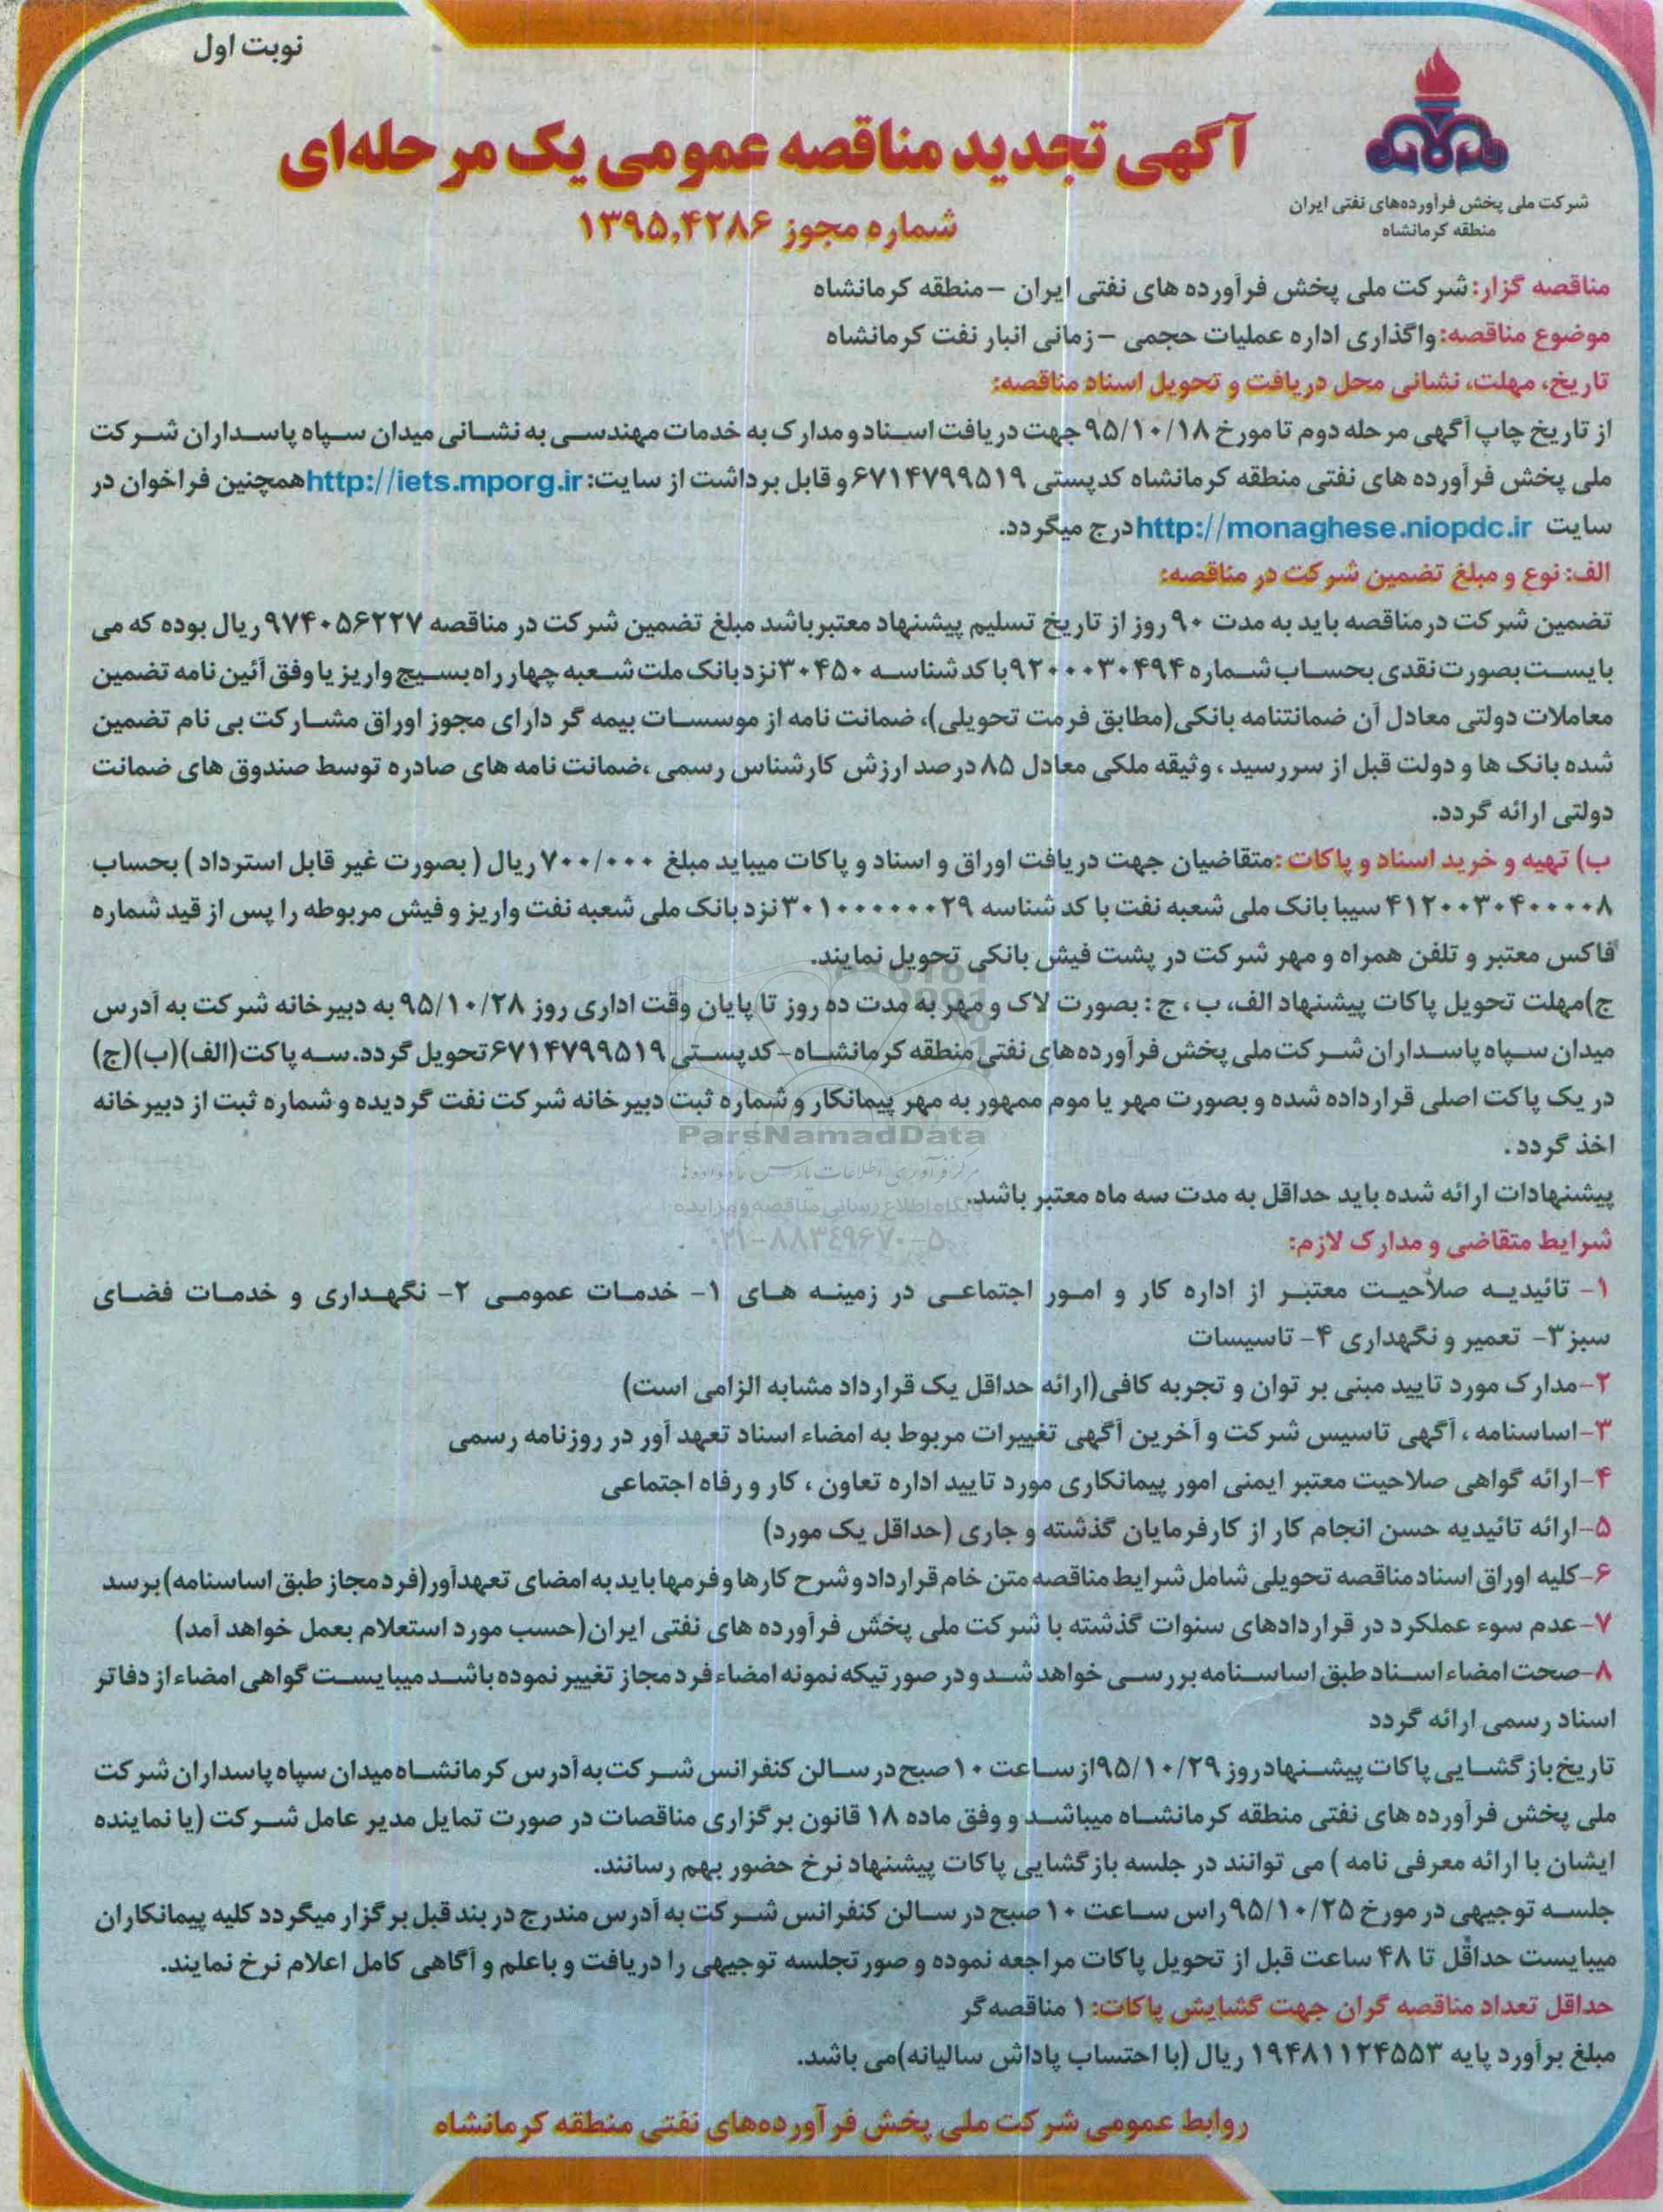 نوبت اول
شرکت ملی پخش فرآورده‌های نفتی ایران
منطقه کرمانشاه
آگهی تجدید مناقصه عمومی یک مرحله‌ای
شماره مجوز ۱۳۹۵,۴۲۸۶
مناقصه گزار: شرکت ملی پخش فرآورده های نفتی ایران -منطقه کرمانشاه
موضوع مناقصه: واگذاری اداره عملیات حجمی -زمانی انبار نفت کرمانشاه
تاریخ، مهلت، نشانی محل دریافت و تحویل اسناد مناقصه:
از تاریخ چاپ آگهی مرحله دوم تا مورخ ۹۵/۱۰/۱۸ جهت دریافت اسناد و مدارک به خدمات مهندسی به نشانی میدان سپاه پاسداران شرکت
ملی پخش فرآورده های نفتی منطقه کرمانشاه کدپستی ۶۷۱۴۷۹۹۵۱۹ و قابل برداشت از سایت: http://iets.mporg.ir همچنین فراخوان در
سایت http://monaghese.niopdc.ir درج میگردد.
الف: نوع و مبلغ تضمین شرکت در مناقصه:
تضمین شرکت درمناقصه باید به مدت ۹۰ روز از تاریخ تسلیم پیشنهاد معتبرباشد مبلغ تضمین شرکت در مناقصه ۹۷۴۰۵۶۲۲۷ ریال بوده که می
بایست بصورت نقدی بحساب شماره ۹۲۰۰۰۳۰۴۹۴ با کد شناسه ۳۰۴۵۰ نزد بانک ملت شعبه چهار راه بسیج واریز یا وفق آئین نامه تضمین
معاملات دولتی معادل آن ضمانتنامه بانکی(مطابق فرمت تحویلی)، ضمانت نامه از موسسات بیمه گر دارای مجوز اوراق مشارکت بی نام تضمین
شده بانک ها و دولت قبل از سررسید ، وثیقه ملکی معادل ۸۵ درصد ارزش کارشناس رسمی ،ضمانت نامه های صادره توسط صندوق های ضمانت
دولتی ارائه گردد.
ب) تهیه و خرید اسناد و پاکات :متقاضیان جهت دریافت اوراق و اسناد و پاکات میباید مبلغ ۷۰۰/۰۰۰ ریال ( بصورت غیر قابل استرداد ) بحساب
۴۱۲۰۰۳۰۴۰۰۰۰۸ سیبا بانک ملی شعبه نفت با کد شناسه ۳۰۱۰۰۰۰۰۰۲۹ نزد بانک ملی شعبه نفت واریز و فیش مربوطه را پس از قید شماره
فاکس معتبر و تلفن همراه و مهر شرکت در پشت فیش بانکی تحویل نمایند.
ج)مهلت تحویل پاکات پیشنهاد الف، ب ، ج : بصورت لاک و مهر به مدت ده روز تا پایان وقت اداری روز ۹۵/۱۰/۲۸ به دبیرخانه شرکت به آدرس
میدان سپاه پاسداران شرکت ملی پخش فرآورده‌های نفتی منطقه کرمانشاه- کدپستی ۶۷۱۴۷۹۹۵۱۹ تحویل گردد. سه پاکت (الف)(ب)(ج)
در یک پاکت اصلی قرارداده شده و بصورت مهر یا موم ممهور به مهر پیمانکار و شماره ثبت دبیرخانه شرکت نفت گردیده و شماره ثبت از دبیرخانه
اخذ گردد .
ParsNamadData
مرکز فرآوری اطلاعات پارس نماد داده ها
پیشنهادات ارائه شده باید حداقل به مدت سه ماه معتبر باشد.
پایگاه اطلاع رسانی مناقصه و مزایده
۰۲۱-۸۸۳۴۹۶۷۰-۵
شرایط متقاضی و مدارک لازم:
۱- تائیدیه صلاحیت معتبر از اداره کار و امور اجتماعی در زمینه های ۱- خدمات عمومی ۲- نگهداری و خدمات فضای
سبز۳- تعمیر و نگهداری ۴- تاسیسات
۲-مدارک مورد تایید مبنی بر توان و تجربه کافی(ارائه حداقل یک قرارداد مشابه الزامی است)
۳-اساسنامه ، آگهی تاسیس شرکت و آخرین آگهی تغییرات مربوط به امضاء اسناد تعهد آور در روزنامه رسمی
۴-ارائه گواهی صلاحیت معتبر ایمنی امور پیمانکاری مورد تایید اداره تعاون ، کار و رفاه اجتماعی
۵-ارائه تائیدیه حسن انجام کار از کارفرمایان گذشته و جاری (حداقل یک مورد)
۶-کلیه اوراق اسناد مناقصه تحویلی شامل شرایط مناقصه متن خام قرارداد و شرح کارها و فرمها باید به امضای تعهدآور(فرد مجاز طبق اساسنامه) برسد
۷-عدم سوء عملکرد در قراردادهای سنوات گذشته با شرکت ملی پخش فرآورده های نفتی ایران(حسب مورد استعلام بعمل خواهد آمد)
۸-صحت امضاء اسناد طبق اساسنامه بررسی خواهد شد و در صورتیکه نمونه امضاء فرد مجاز تغییر نموده باشد میبایست گواهی امضاء از دفاتر
اسناد رسمی ارائه گردد
تاریخ بازگشایی پاکات پیشنهاد روز ۹۵/۱۰/۲۹ از ساعت ۱۰ صبح در سالن کنفرانس شرکت به آدرس کرمانشاه میدان سپاه پاسداران شرکت
ملی پخش فرآورده های نفتی منطقه کرمانشاه میباشد و وفق ماده ۱۸ قانون برگزاری مناقصات در صورت تمایل مدیر عامل شرکت (یا نماینده
ایشان با ارائه معرفی نامه ) می توانند در جلسه بازگشایی پاکات پیشنهاد نرخ حضور بهم رسانند.
جلسه توجیهی در مورخ ۹۵/۱۰/۲۵ راس ساعت ۱۰ صبح در سالن کنفرانس شرکت به آدرس مندرج در بند قبل برگزار میگردد کلیه پیمانکاران
میبایست حداقل تا ۴۸ ساعت قبل از تحویل پاکات مراجعه نموده و صورتجلسه توجیهی را دریافت و باعلم و آگاهی کامل اعلام نرخ نمایند.
حداقل تعداد مناقصه گران جهت گشایش پاکات: ۱ مناقصه‌گر
مبلغ برآورد پایه ۱۹۴۸۱۱۲۴۵۵۳ ریال (با احتساب پاداش سالیانه)می باشد.
روابط عمومی شرکت ملی پخش فرآورده‌های نفتی منطقه کرمانشاه